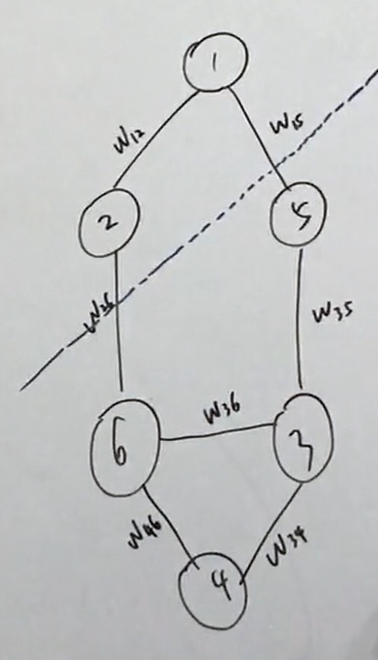 1
W12
W15
2
5
W26
W35
W36
6
3
W46
W34
4